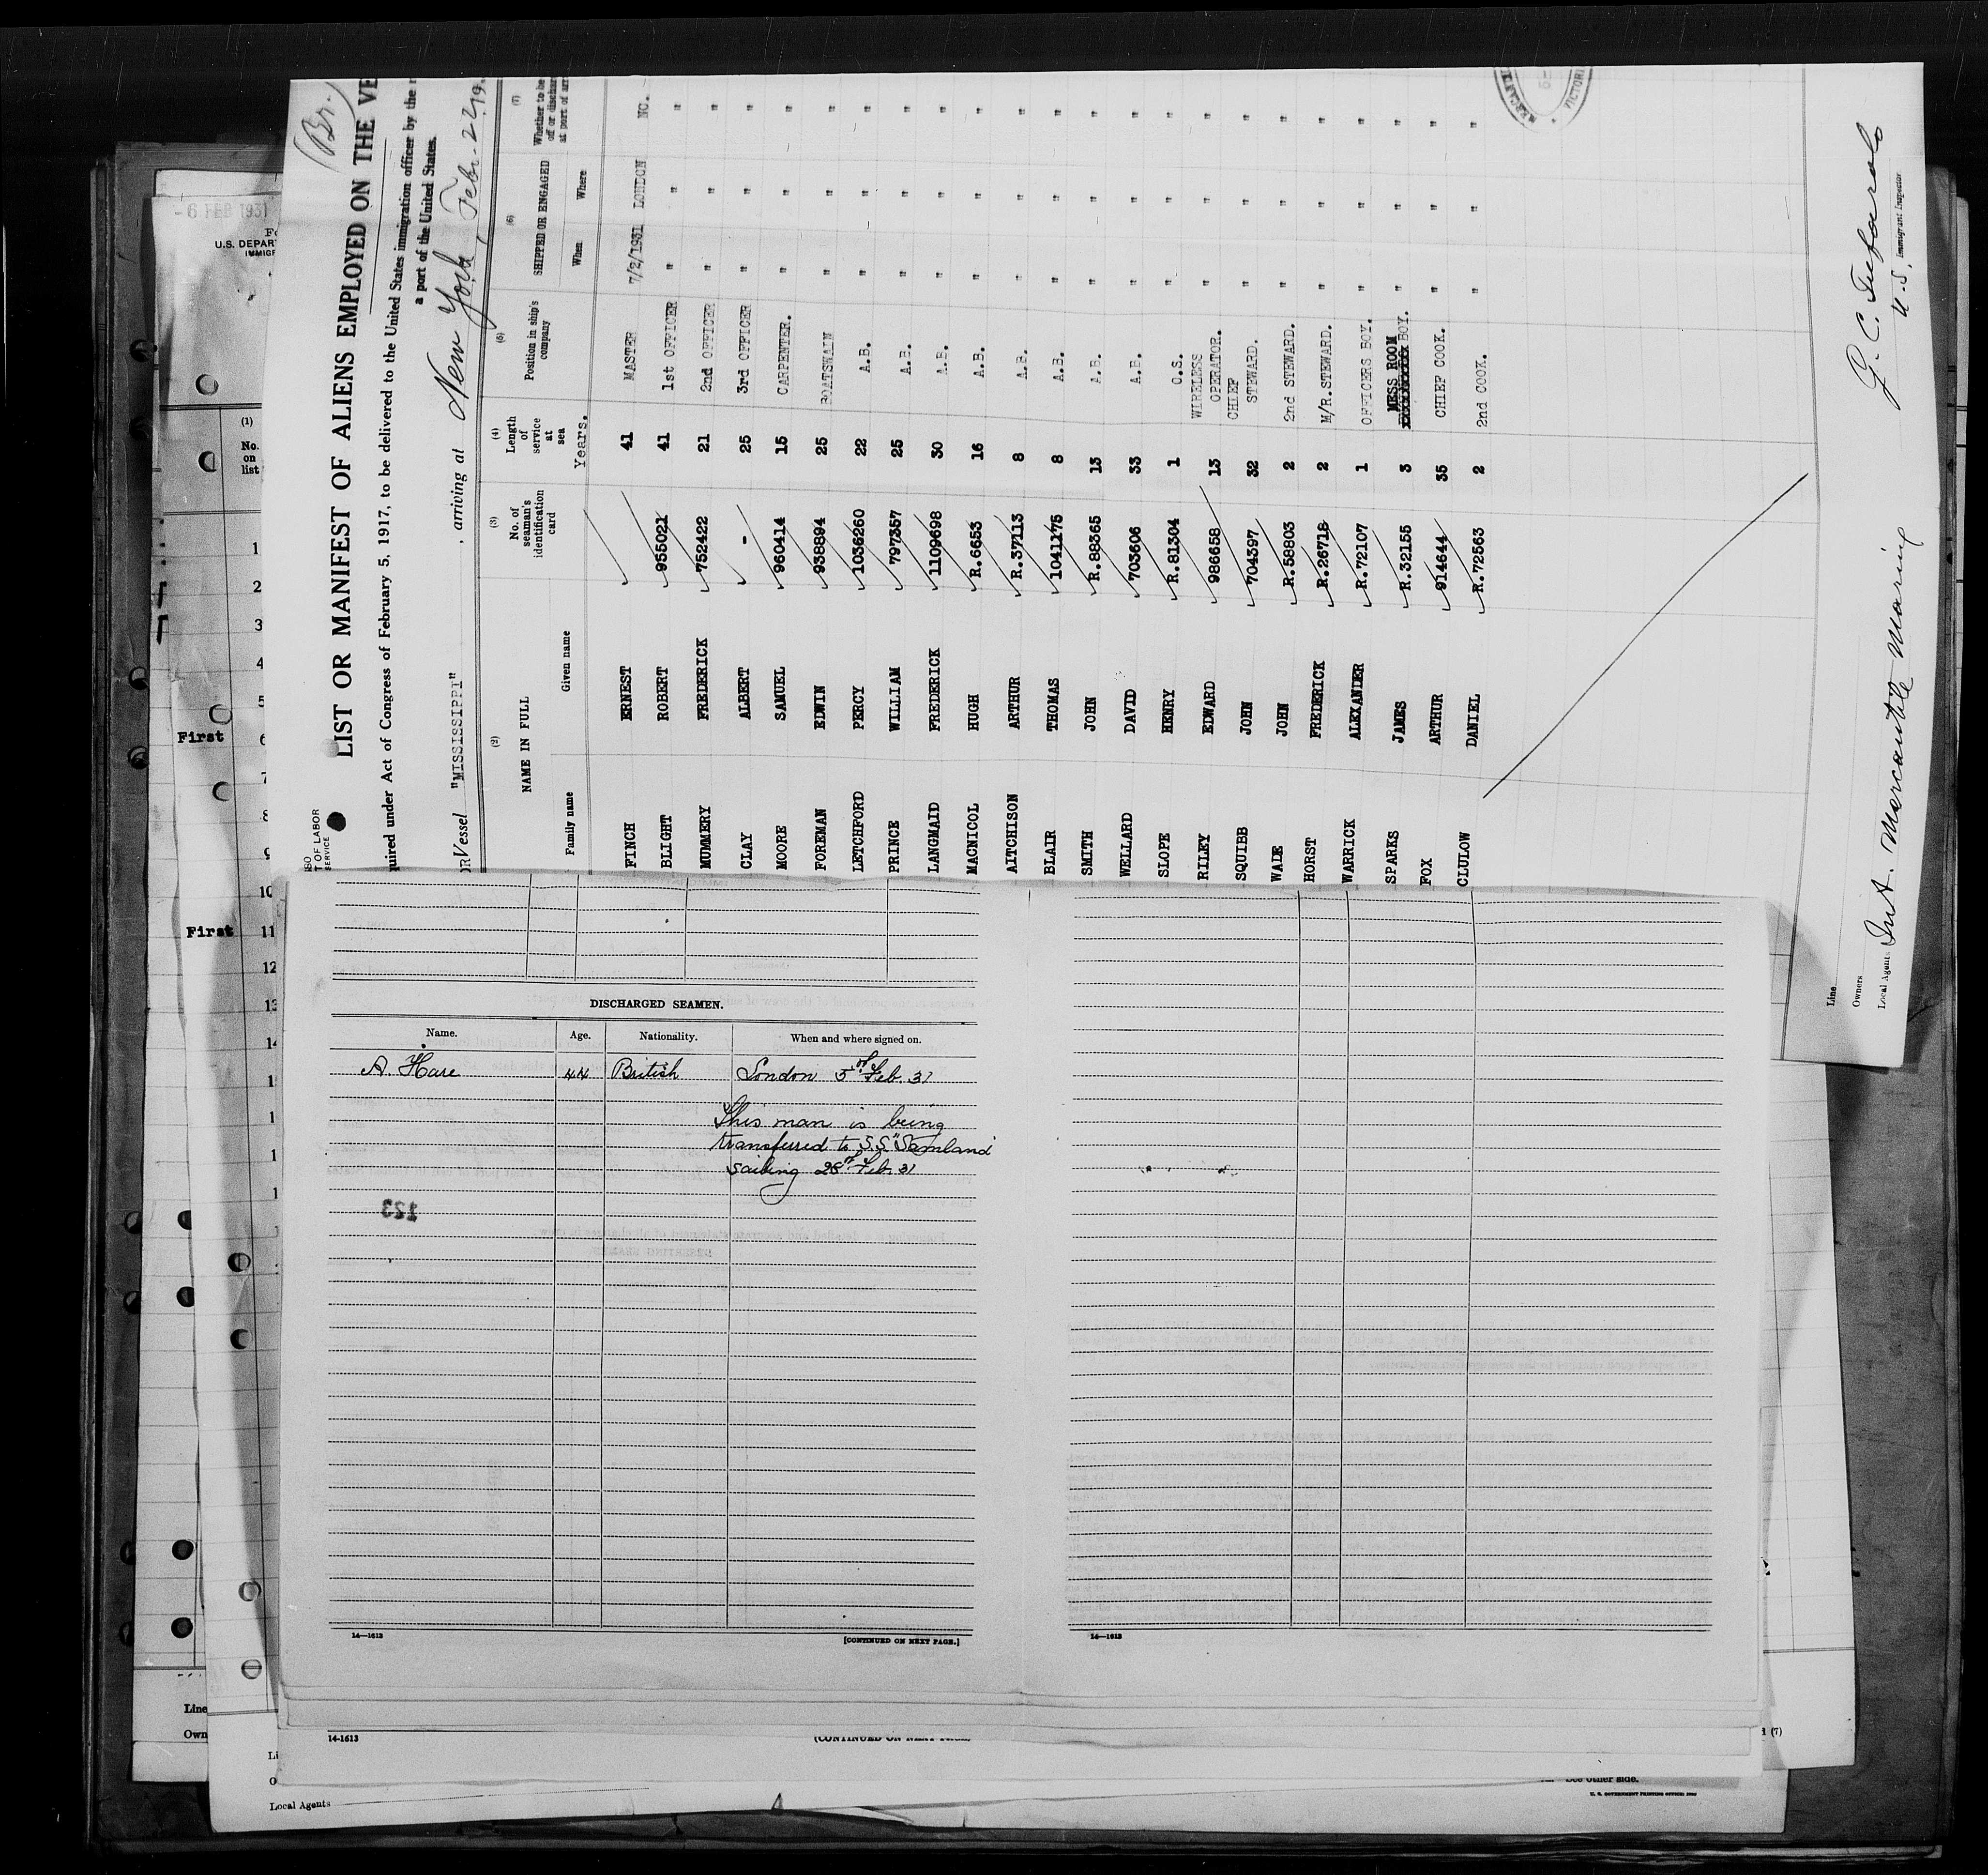 (Br.)
LIST OR MANIFEST OF ALIENS EMPLOYED ON THE VE
quired under Act of Congress of February 5, 1917, to be delivered to the United States immigration officer by the
a port of the United States.
Vessel "MISSISSIPI" , arriving at New York, Febr. 22 19
(2) (3) (4) (5) (6) (7)
NAME IN FULL No. of seaman's identification card Length of service at sea Position in ship's company SHIPPED OR ENGAGED Whether to be
Family name Given name Years. When Where
FINCH ERNEST 41 MASTER 7/2/1931 LONDON NO.
BLIGHT ROBERT 955021 41 1st OFFICER " " "
MUMMERY FREDERICK 752422 21 2nd OFFICER " " "
CLAY ALBERT - 25 3rd OFFICER " " "
MOORE SAMUEL 960414 15 CARPENTER. " " "
FOREMAN EDWIN 938894 25 BOATSWAIN " " "
LETCHFORD PERCY 1036260 22 A.B. " " "
PRINCE WILLIAM 797357 25 A.B. " " "
LANGMAID FREDERICK 1109698 30 A.B. " " "
MACNICOL HUGH R.6653 16 A.B. " " "
AITCHISON ARTHUR R.37113 8 A.B. " " "
BLAIR THOMAS 1041175 8 A.B. " " "
SMITH JOHN R.88365 13 A.B. " " "
WELLARD DAVID 703606 33 A.B. " " "
SLOPE HENRY R.81304 1 O.S. " " "
RILEY EDWARD 986658 13 WIRELESS OPERATOR. " " "
SQUIBB JOHN 704397 32 CHIEF STEWARD. " " "
WADE JOHN R.58803 2 2nd STEWARD. " " "
HORST FREDERICK R.26718 2 M/R.STEWARD. " " "
WARRICK ALEXANDER R.72107 1 OFFICERS BOY. " " "
SPARKS JAMES R.32155 3 MESS ROOM BOY. " " "
FOX ARTHUR 914644 35 CHIEF COOK. " " "
CLULOW DANIEL R.72563 2 2nd COOK. " " "
VICTORI
Line
Owners
Local Agents Int. Mercantile Marine
U.S. Immigrant Inspector
- 6 FEB 1931
U.S. DEPAR
IMMIGR
T OF LABOR
SERVICE
(1)
No.
on
list
1
2
3
4
5
First 6
7
8
9
10
First 11
12
13
14
DISCHARGED SEAMEN.
Name. Age. Nationality. When and where signed on.
A. Hare 44 British London 5th Feb. 31
This man is being
transferred to S.S. "Samland"
sailing 28th Feb. 31
123
14—1613 [CONTINUED ON NEXT PAGE.]
14—1613
14-1613 (CONTINUED ON NEXT PAGE)
(7)
Line
Own
See other side.
Local Agents
U. S. GOVERNMENT PRINTING OFFICE: